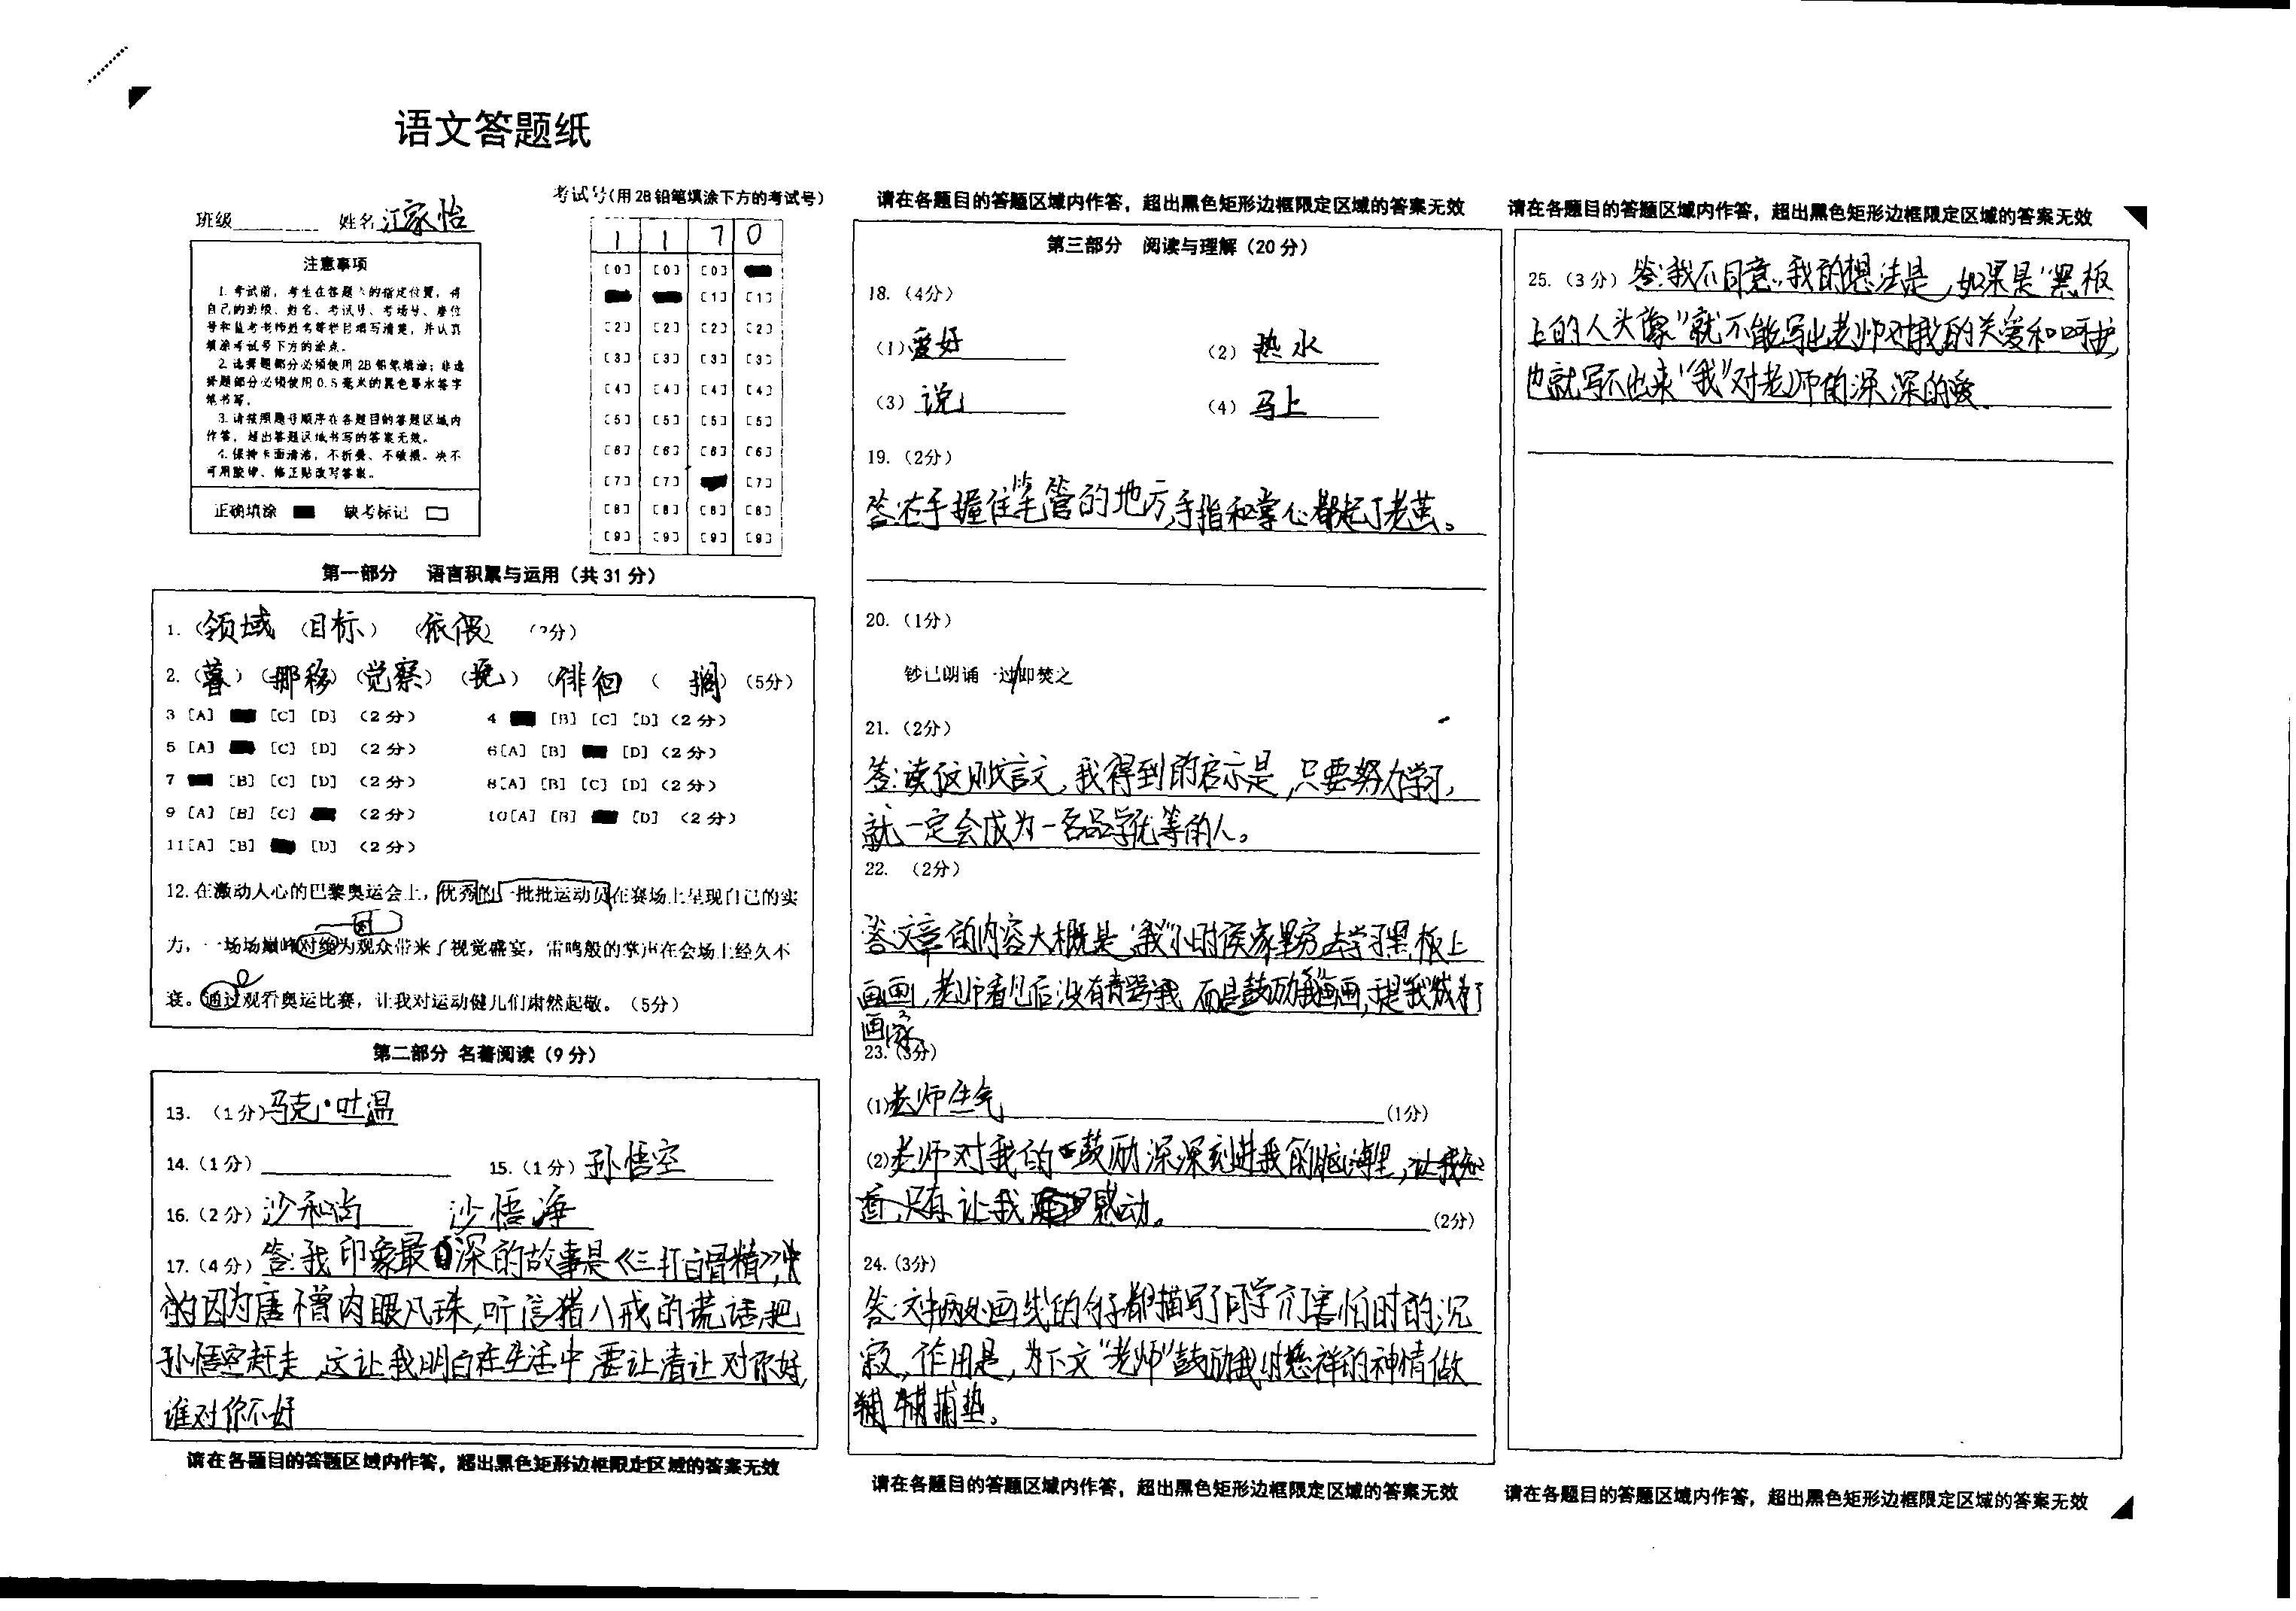 语文答题纸
班级 姓名 江家怡
考试号(用2B铅笔填涂下方的考试号)
1 1 7 0
[0] [0] [0]
[1] [1]
[2] [2] [2] [2]
[3] [3] [3] [3]
[4] [4] [4] [4]
[5] [5] [5] [5]
[6] [6] [6] [6]
[7] [7] [7]
[8] [8] [8] [8]
[9] [9] [9] [9]
注意事项
1. 考试前,考生在答题卡的指定位置,将
自己的班级、姓名、考试号、考场号、座位
号和监考老师姓名等栏目填写清楚,并认真
填涂考试号下方的涂点。
2. 选择题部分必须使用2B铅笔填涂;非选
择题部分必须使用0.5毫米的黑色墨水签字
笔书写。
3. 请按照题号顺序在各题目的答题区域内
作答,超出答题区域书写的答案无效。
4. 保持卡面清洁,不折叠、不破损。决不
可用胶带、修正贴改写答案。
正确填涂 缺考标记
第一部分 语言积累与运用(共31分)
1. (领域 (目标) (依偎) (2分)
2. (暮) (挪移) (觉察) (挽) (徘徊 ( 搁) (5分)
3 [A] [C] [D] (2分) 4 [B] [C] [D] (2分)
5 [A] [C] [D] (2分) 6 [A] [B] [D] (2分)
7 [B] [C] [D] (2分) 8 [A] [B] [C] [D] (2分)
9 [A] [B] [C] (2分) 10 [A] [B] [D] (2分)
11 [A] [B] [D] (2分)
12. 在激动人心的巴黎奥运会上,优秀的一批批运动员在赛场上呈现自己的实
力,一场场巅峰对绝为观众带来了视觉盛宴,雷鸣般的掌声在会场上经久不
决
衰。通过观看奥运比赛,让我对运动健儿们肃然起敬。(5分)
第二部分 名著阅读(9分)
13. (1分)马克·吐温
14. (1分) 15. (1分) 孙悟空
16. (2分) 沙和尚 沙悟净
17. (4分) 答:我印象最深的故事是《三打白骨精》,
的因为唐僧肉眼凡珠,听信猪八戒的谎话,把
孙悟空赶走,这让我明白在生活中要让清让对你好,
谁对你不好
请在各题目的答题区域内作答,超出黑色矩形边框限定区域的答案无效
请在各题目的答题区域内作答,超出黑色矩形边框限定区域的答案无效
第三部分 阅读与理解(20分)
18. (4分)
(1)爱好 (2) 热水
(3) 说 (4) 马上
19. (2分)
答:右手握住笔管的地方,手指和掌心都起了老茧。
20. (1分)
钞已朗诵一过/即焚之
21. (2分)
答:读了这则文言文,我得到的启示是,只要努力学习,
就一定会成为一名品学优等的人。
22. (2分)
答:文章的内容大概是,“我”小时候家里穷去学习黑板上
画画,老师看见后没有责骂我,而是鼓励我画画,于是我成为了
画家
23. (3分)
(1)老师生气 (1分)
(2)老师对我的鼓励深深刻进我的脑海里,让我知
道,只有让我感动。 (2分)
24. (3分)
答:文中两处画线的句子都描写了同学们害怕时的沉
寂,作用是,为下文“老师”鼓励我时慈祥的神情做
铺垫。
请在各题目的答题区域内作答,超出黑色矩形边框限定区域的答案无效
请在各题目的答题区域内作答,超出黑色矩形边框限定区域的答案无效
25. (3分) 答:我不同意,我的想法是,如果是“黑板
上的人头像”就不能写出老师对我的关爱和呵护,
也就写不出来“我”对老师的深深的爱.
请在各题目的答题区域内作答,超出黑色矩形边框限定区域的答案无效